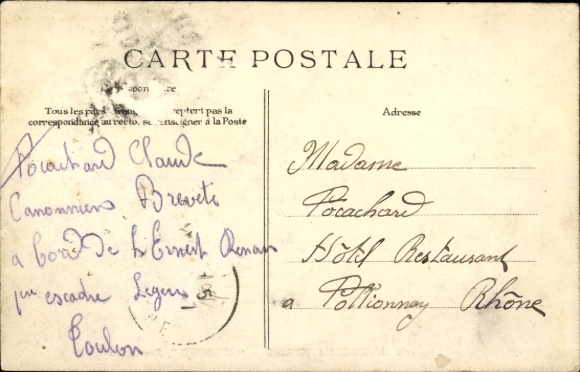 CARTE POSTALE
Tous les pays acceptent pas la
correspondance au recto. se renseigner à la Poste
Adresse
Pocachard Claude
Canonniers Breveté
a bord de L Ernest Renan
escadre Légère
Toulon
Madame
Pocachard
Hôtel Restaurant
a Pollionnay Rhône